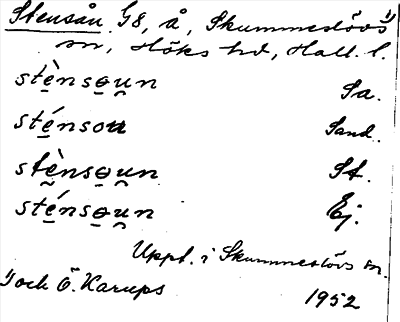 Stensån. G8, å, Skummeslövs 1)
sn, Höks hd, Hall. l.
stè̱nsọu̯n Sa.
sté̱nsou Sand.
stè̱nsọu̯n St.
sté̱nsọu̯n Ej.
Uppt. i Skummeslövs sn.
1) och Ö. Karups 1952